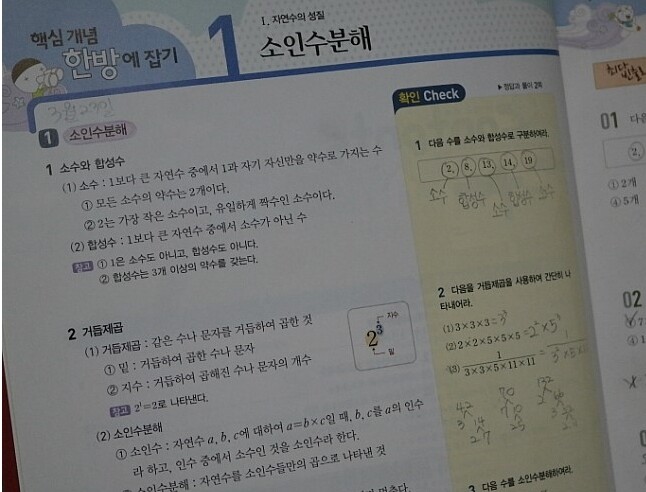 핵심 개념
한방에 잡기
1
1. 자연수의 성질
소인수분해
3월 23일
1 소인수분해
1 소수와 합성수
(1) 소수 : 1보다 큰 자연수 중에서 1과 자기 자신만을 약수로 가지는 수
① 모든 소수의 약수는 2개이다.
② 2는 가장 작은 소수이고, 유일하게 짝수인 소수이다.
(2) 합성수 : 1보다 큰 자연수 중에서 소수가 아닌 수
참고 ① 1은 소수도 아니고, 합성수도 아니다.
② 합성수는 3개 이상의 약수를 갖는다.
2 거듭제곱
(1) 거듭제곱 : 같은 수나 문자를 거듭하여 곱한 것
① 밑 : 거듭하여 곱한 수나 문자
② 지수 : 거듭하여 곱해진 수나 문자의 개수
참고 2¹=2로 나타낸다.
2³
지수
밑
(2) 소인수분해
① 소인수 : 자연수 a, b, c에 대하여 a=b×c일 때, b, c를 a의 인수
라 하고, 인수 중에서 소수인 것을 소인수라 한다.
소인수분해 : 자연수를 소인수들만의 곱으로 나타낸 것
확인 Check
▶ 정답과 풀이 2쪽
1 다음 수를 소수와 합성수로 구분하여라.
2, 8, 13, 14, 19
소수 합성수 소수 합성수 소수
2 다음을 거듭제곱을 사용하여 간단히 나
타내어라.
(1) 3×3×3 =3³
(2) 2×2×5×5×5 =2²×5³
(3) 1/(3×3×5×11×11) =
42 70 132
3 14
2 7
3 다음 수를 소인수분해하여라.
최다
01 다음
2,
① 2개
④ 5개
02